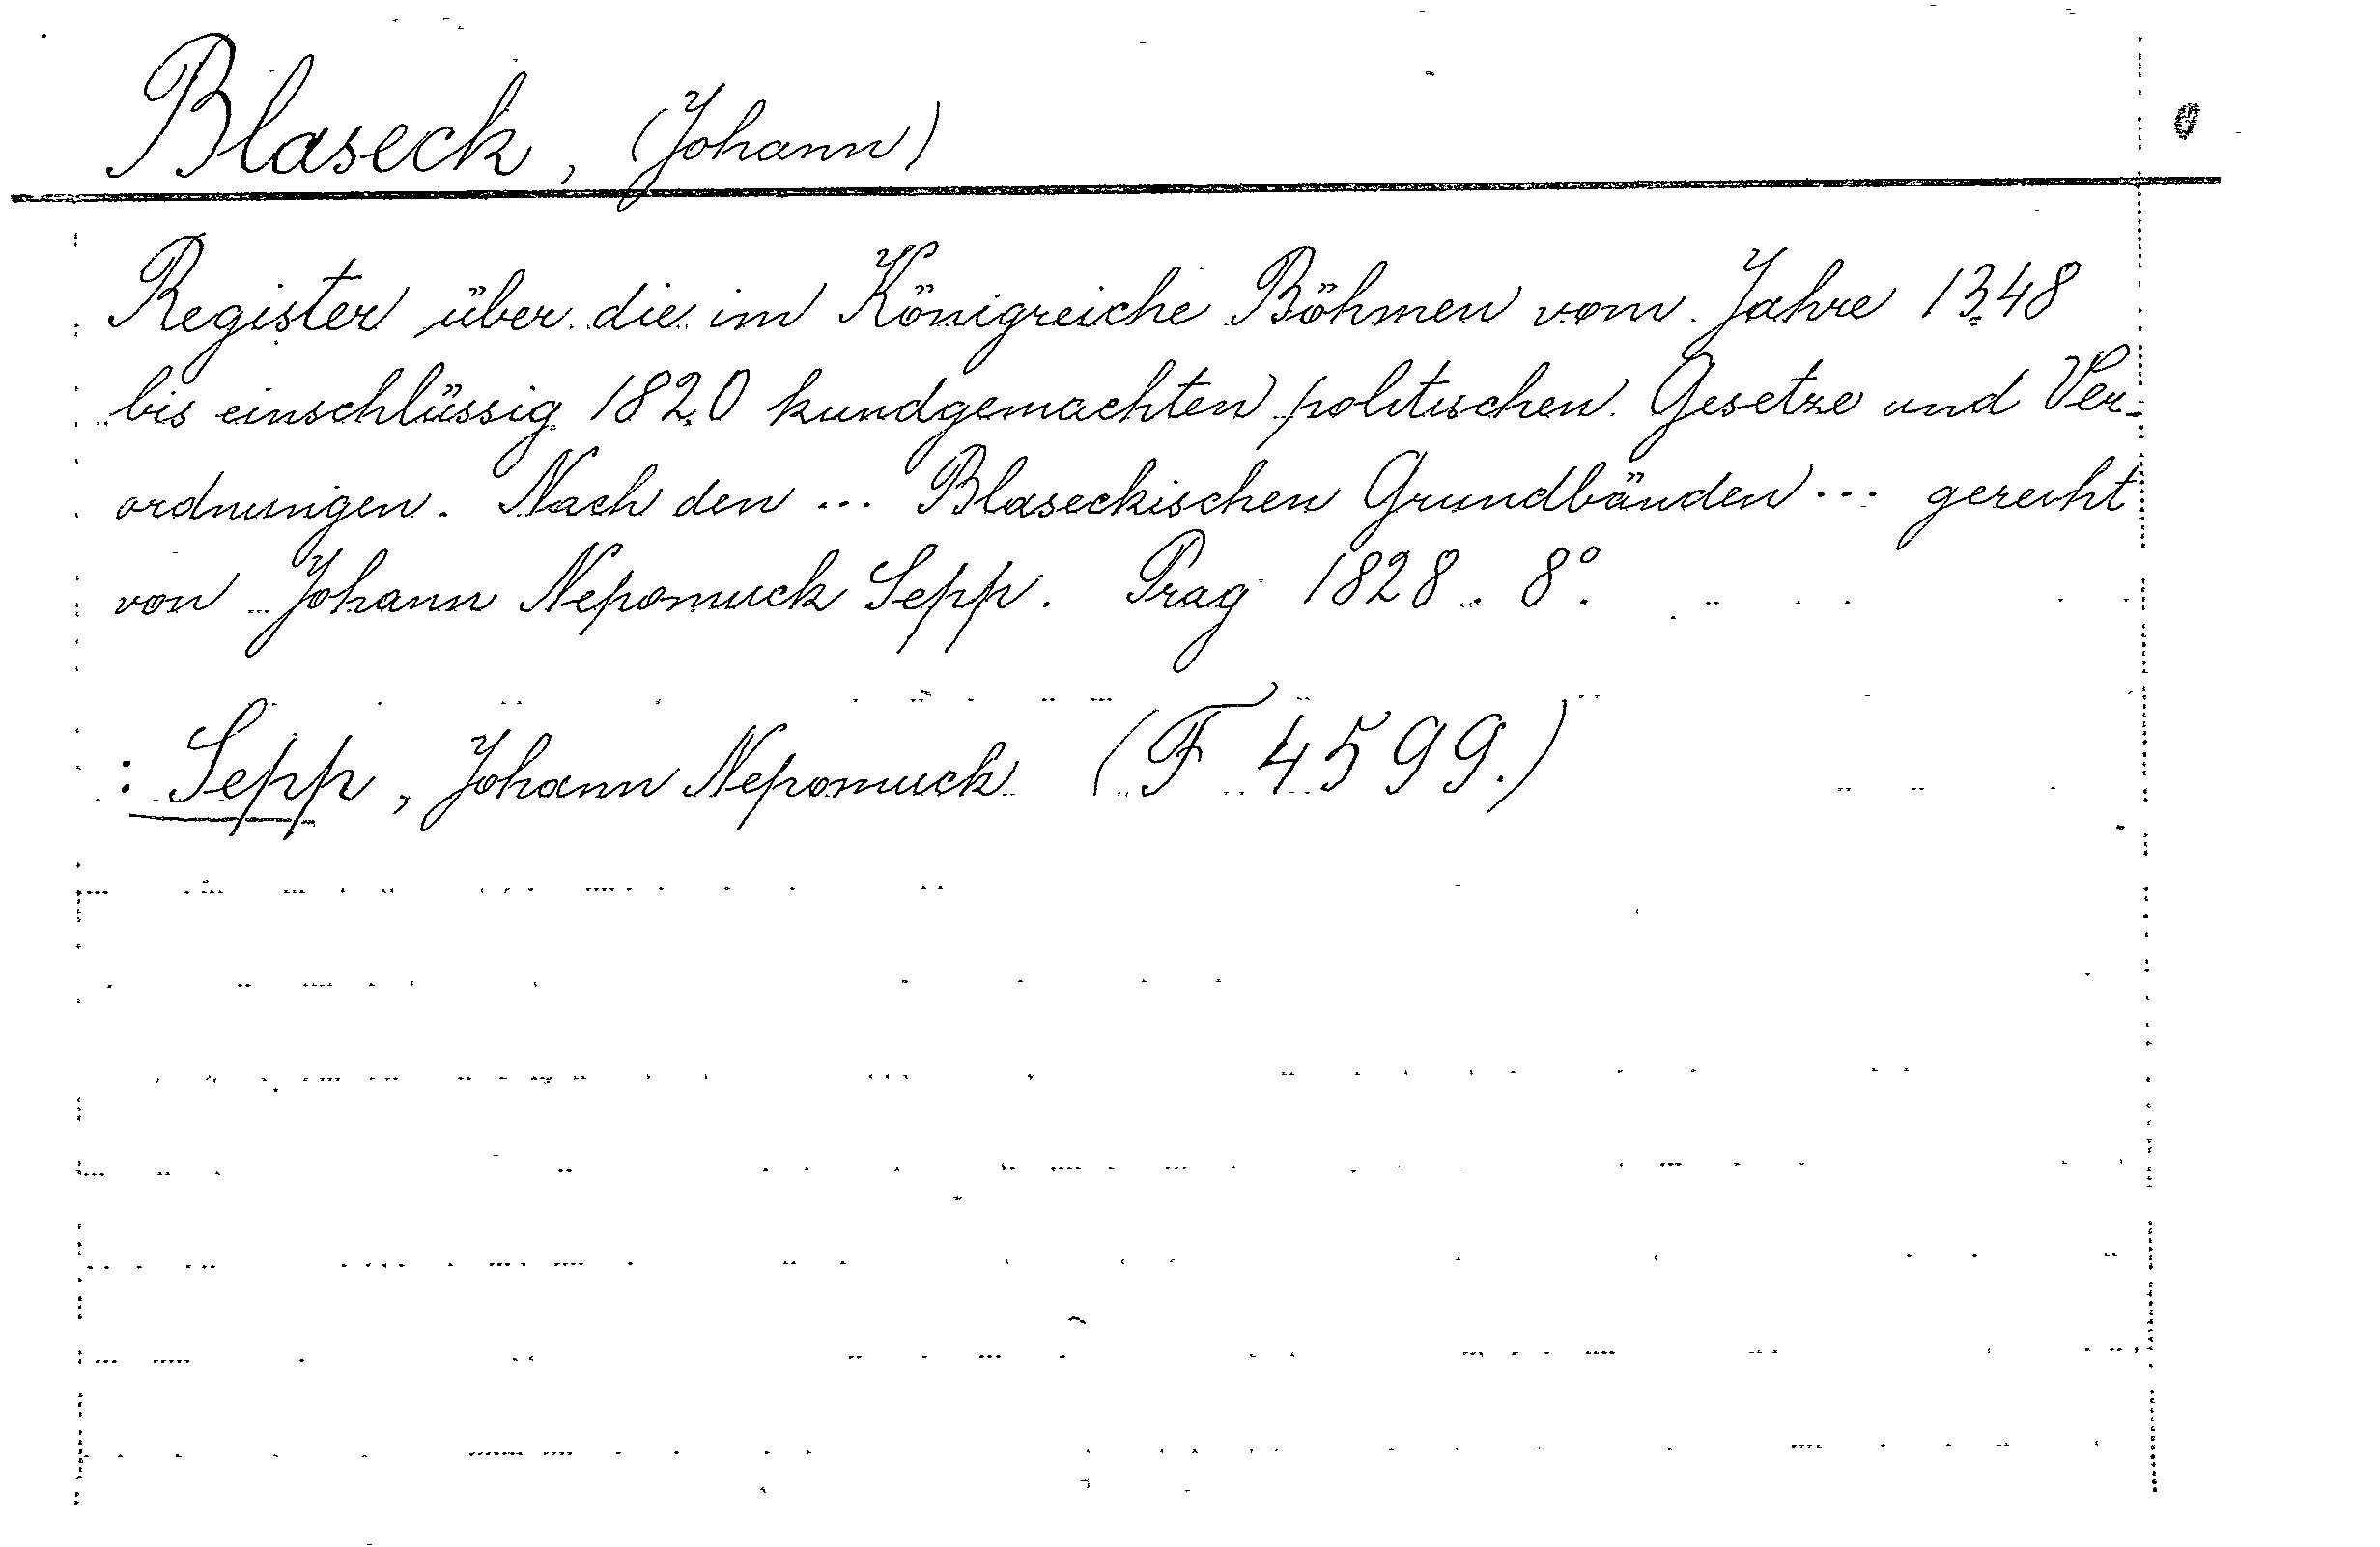 Blaseck, (Johann)
Register über die im Königreiche Böhmen vom Jahre 1348
bis einschlüssig 1820 kundgemachten politischen Gesetze und Ver-
ordnungen. Nach den ... Blaseckischen Grundbänden ... gereiht
von Johann Nepomuck Sepp. Prag 1828. 8°.
: Sepp, Johann Nepomuck (F 4599.)